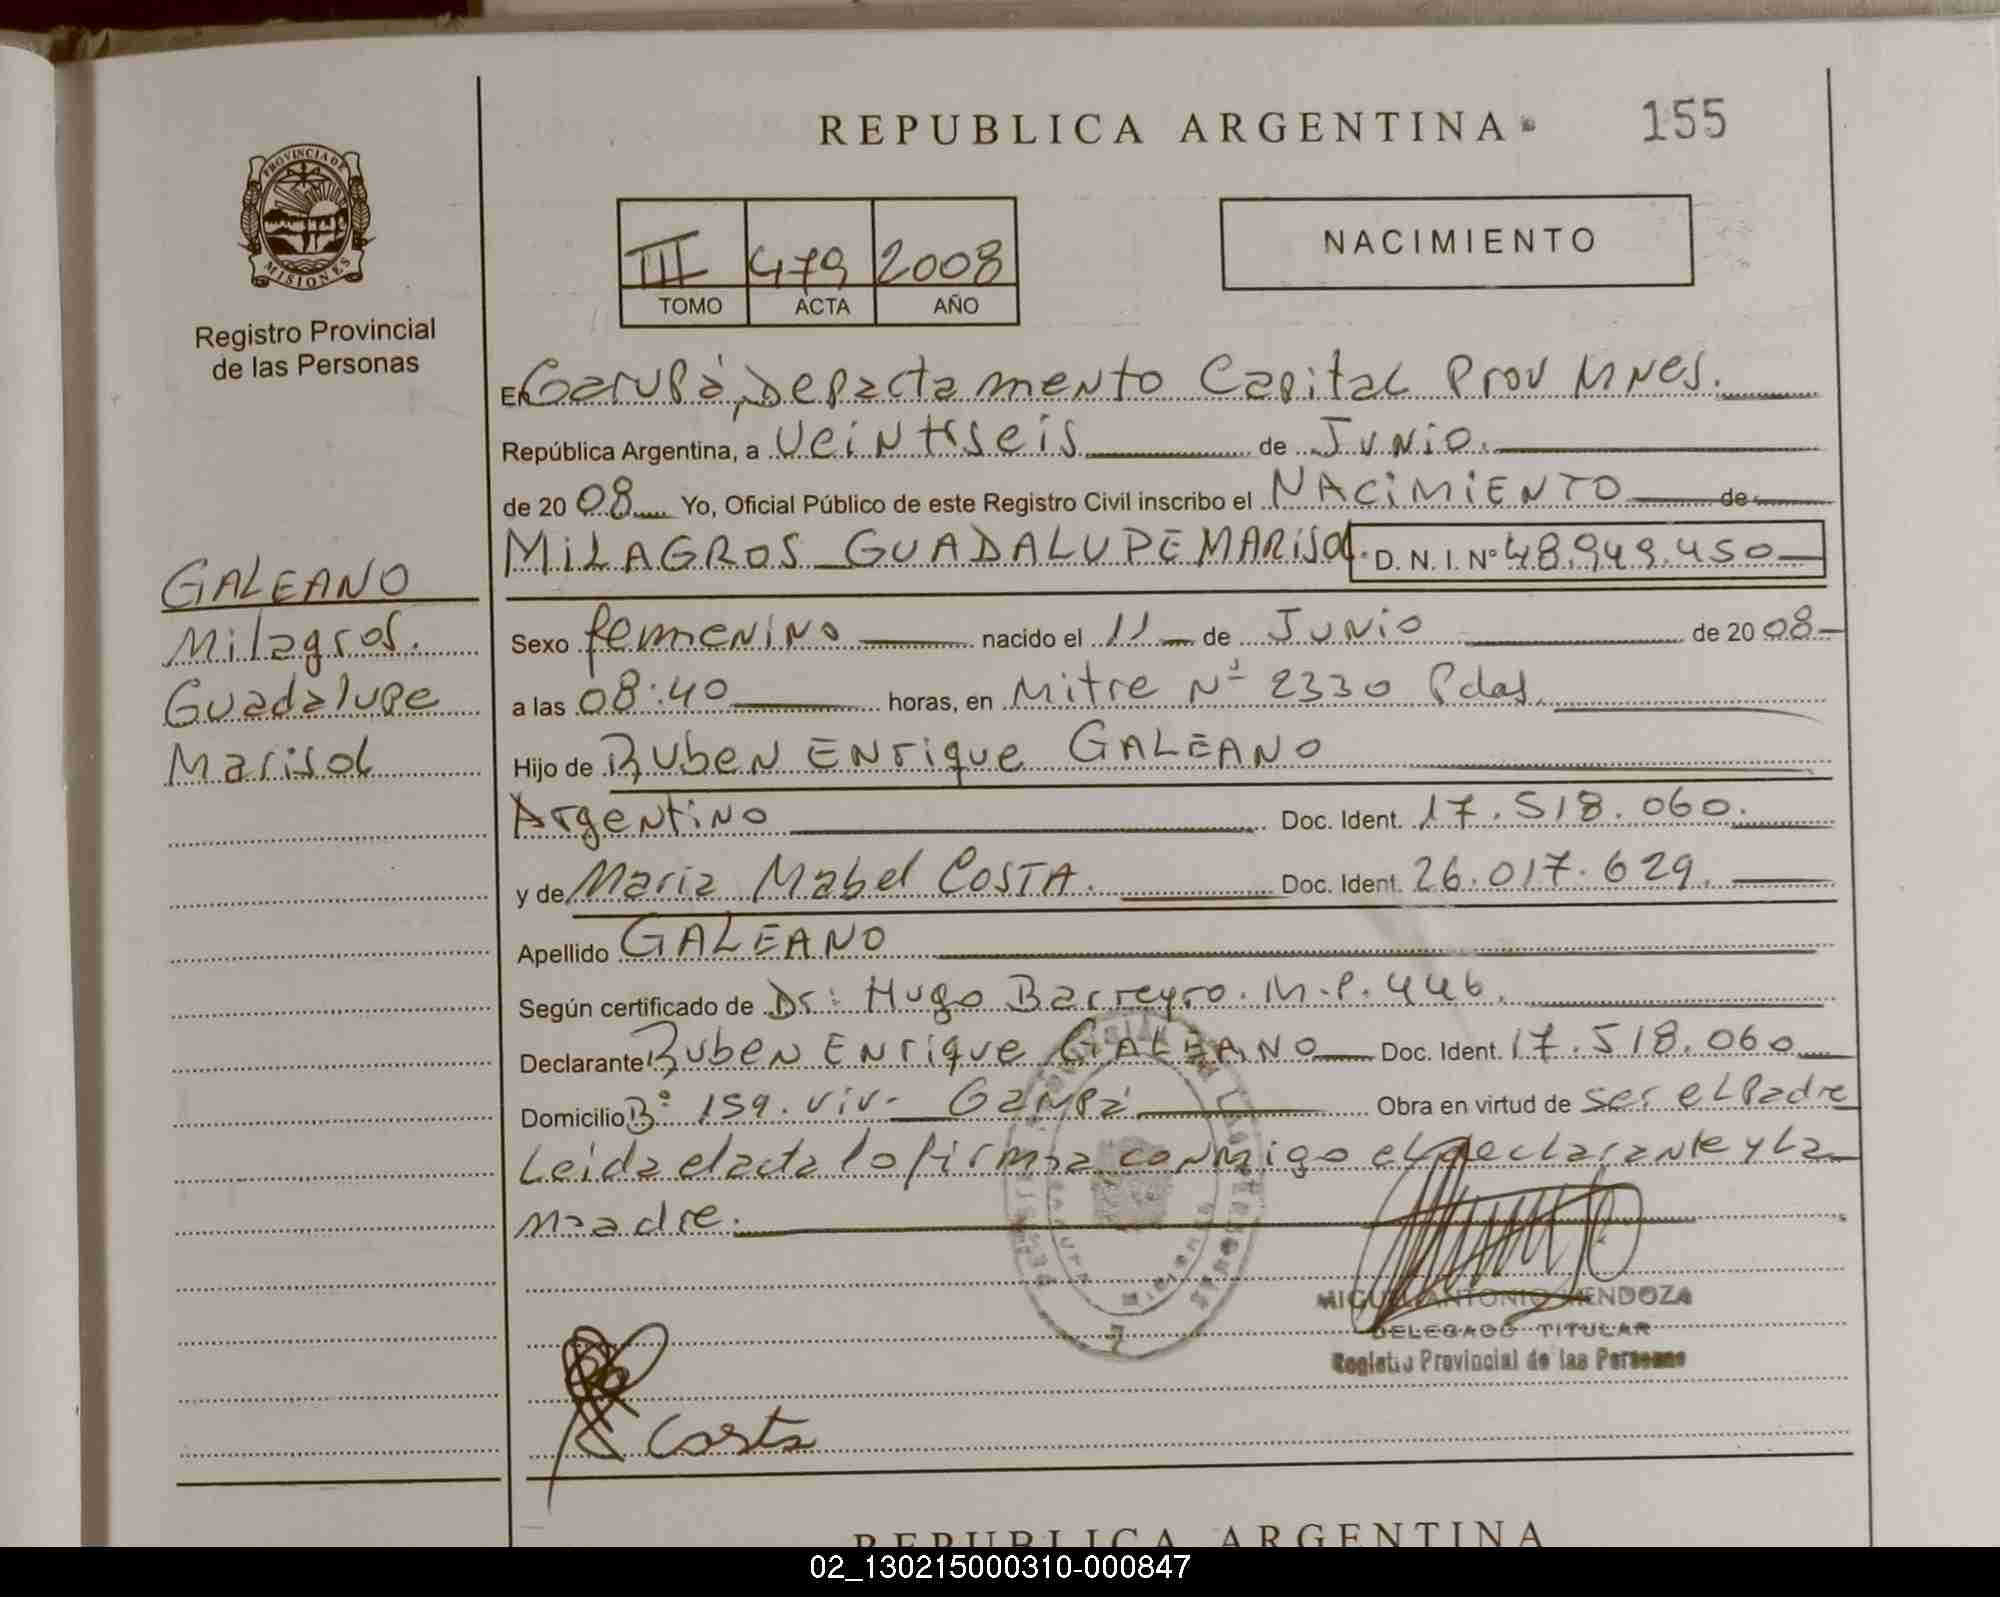 REPUBLICA ARGENTINA
155
PROVINCIA DE
MISIONES
Registro Provincial
de las Personas
III 479 2008
TOMO ACTA AÑO
NACIMIENTO
En Garupá, Departamento Capital Prov Mnes.
República Argentina, a Veintiseis de Junio.
de 20 08 Yo, Oficial Público de este Registro Civil inscribo el NACIMIENTO de
MILAGROS GUADALUPE MARISOL. D. N. I. Nº 48.949.450
GALEANO
Milagros.
Guadalupe
Marisol
Sexo femenino nacido el 11 de Junio de 20 08
a las 08:40 horas, en Mitre Nº 2330 Pdas.
Hijo de Ruben Enrique GALEANO
Argentino Doc. Ident. 17.518.060.
y de Maria Mabel COSTA. Doc. Ident. 26.017.629.
Apellido GALEANO
Según certificado de Dr: Hugo Barreyro. M.P. 446.
Declarante Ruben Enrique GALEANO Doc. Ident. 17.518.060
Domicilio Bº 159. viv- Garupá Obra en virtud de ser el Padre
Leida el acta lo firma conmigo el declarante y La
madre.
MIGUEL ANTONIO MENDOZA
DELEGADO TITULAR
Registro Provincial de las Personas
Costa
REPUBLICA ARGENTINA
02_130215000310-000847